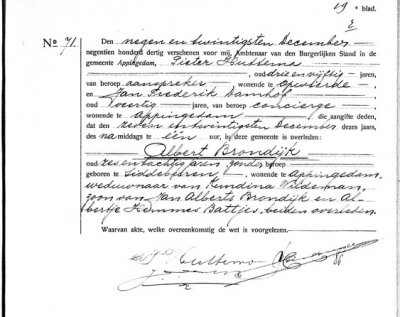 19e blad.
No 71. Den negen en twintigsten December
negentien honderd dertig verschenen voor mij, Ambtenaar van den Burgerlijken Stand in de
gemeente Appingedam, Pieter Huttema
, oud drie en vijftig jaren,
van beroep aanspreker wonende te Opwierde,
en Jan Frederik Damhof, oud
veertig jaren, van beroep concierge
wonende te Appingedam, die aangifte deden,
dat den zeven en twintigsten December dezes jaars,
des na middags te één uur, in deze gemeente is overleden:
Albert Brondijk
oud zes en tachtig jaren, zonder beroep
geboren te Siddeburen, wonende te Appingedam,
weduwnaar van Kundina Vilderman,
zoon van Jan Alberts Brondijk en Al-
bertje Hemmes Battjes, beiden overleden.
Waarvan akte, welke overeenkomstig de wet is voorgelezen.
Huttema